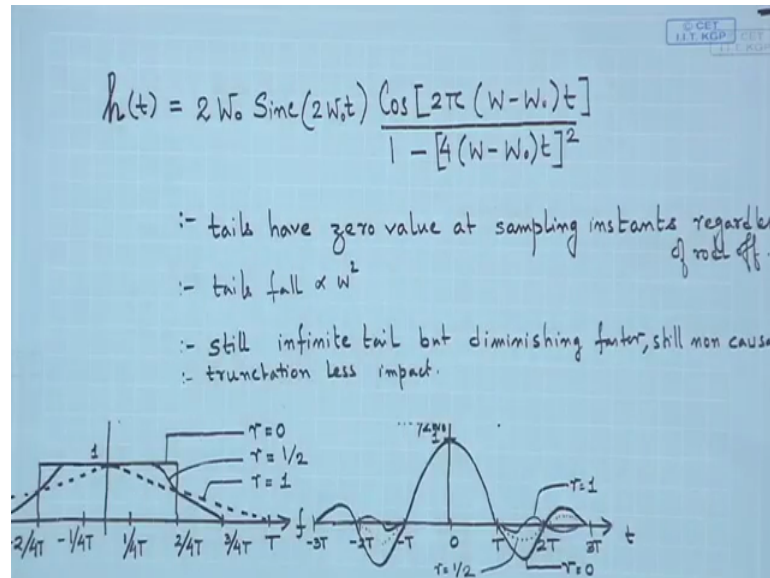 © CET
I.I.T. KGP
h(t) = 2 W₀ Sinc(2W₀t) Cos[2π (W-W₀)t]
1 - [4(W-W₀)t]²
:- tails have zero value at sampling instants
of roll off.
:- tails fall ∝ W²
:- still infinite tail but diminishing faster, still non
:- trunctation Less impact.
r=0
r=1/2
r=1
1
-2/4T -1/4T 1/4T 2/4T 3/4T T f
1
r=1
-3T -2T -T 0 T 2T 3T t
r=1/2 r=0